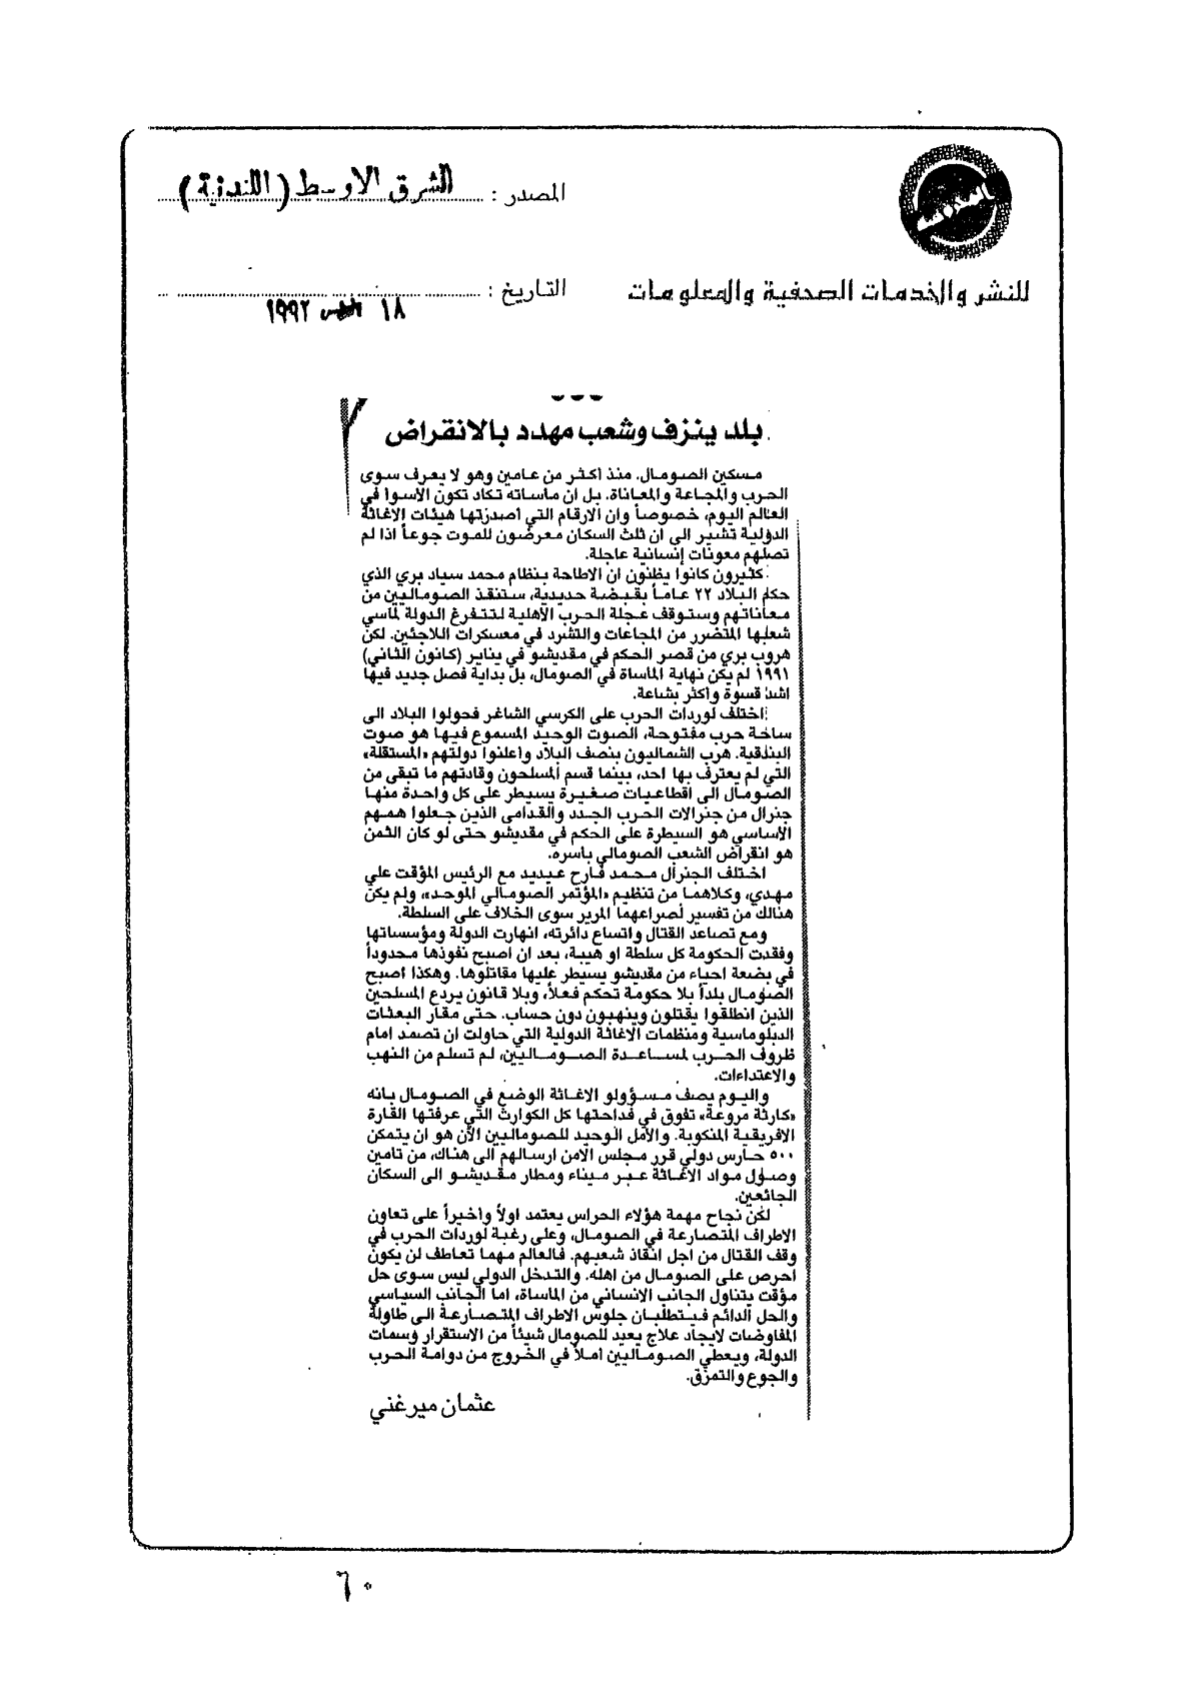 المصدر : الشرق الاوسط (اللندنية)
للنشر والخدمات الصحفية والمعلومات
التاريخ : ١٨ ١٩٩٢
بلد ينزف وشعب مهدد بالانقراض
مسكين الصومال. منذ اكثر من عامين وهو لا يعرف سوى
الحرب والمجاعة والمعاناة. بل ان ماساته تكاد تكون الأسوا في
العالم اليوم، خصوصاً وان الارقام التي اصدرتها هيئات الإغاثة
الدولية تشير الى ان ثلث السكان معرضون للموت جوعاً اذا لم
تصلهم معونات إنسانية عاجلة.
كثيرون كانوا يظنون ان الاطاحة بنظام محمد سياد بري الذي
حكم البلاد ٢٢ عاماً بقبضة حديدية، ستنقذ الصوماليين من
معاناتهم وستوقف عجلة الحرب الأهلية لتتفرغ الدولة لمآسي
شعبها المتضرر من المجاعات والتشرد في معسكرات اللاجئين. لكن
هروب بري من قصر الحكم في مقديشو في يناير (كانون الثاني)
١٩٩١ لم يكن نهاية المأساة في الصومال، بل بداية فصل جديد فيها
اشد قسوة واكثر بشاعة.
اختلف لوردات الحرب على الكرسي الشاغر فحولوا البلاد الى
ساحة حرب مفتوحة، الصوت الوحيد المسموع فيها هو صوت
البندقية. هرب الشماليون بنصف البلاد واعلنوا دولتهم «المستقلة»
التي لم يعترف بها احد، بينما قسم المسلحون وقادتهم ما تبقى من
الصومال الى اقطاعيات صغيرة يسيطر على كل واحدة منها
جنرال من جنرالات الحرب الجدد والقدامى الذين جعلوا همهم
الأساسي هو السيطرة على الحكم في مقديشو حتى لو كان الثمن
هو انقراض الشعب الصومالي باسره.
اختلف الجنرال محمد فارح عيديد مع الرئيس المؤقت علي
مهدي، وكلاهما من تنظيم «المؤتمر الصومالي الموحد»، ولم يكن
هنالك من تفسير لصراعهما المرير سوى الخلاف على السلطة.
ومع تصاعد القتال واتساع دائرته، انهارت الدولة ومؤسساتها
وفقدت الحكومة كل سلطة او هيبة، بعد ان اصبح نفوذها محدوداً
في بضعة احياء من مقديشو يسيطر عليها مقاتلوها. وهكذا اصبح
الصومال بلداً بلا حكومة تحكم فعلاً، وبلا قانون يردع المسلحين
الذين انطلقوا يقتلون وينهبون دون حساب. حتى مقار البعثات
الدبلوماسية ومنظمات الاغاثة الدولية التي حاولت ان تصمد امام
ظروف الحرب لمساعدة الصوماليين، لم تسلم من النهب
والاعتداءات.
واليوم يصف مسؤولو الاغاثة الوضع في الصومال بانه
«كارثة مروعة» تفوق في فداحتها كل الكوارث التي عرفتها القارة
الافريقية المنكوبة. والأمل الوحيد للصوماليين الآن هو ان يتمكن
٥٠٠ حارس دولي قرر مجلس الامن ارسالهم الى هناك، من تامين
وصول مواد الاغاثة عبر ميناء ومطار مقديشو الى السكان
الجائعين.
لكن نجاح مهمة هؤلاء الحراس يعتمد اولاً واخيراً على تعاون
الاطراف المتصارعة في الصومال، وعلى رغبة لوردات الحرب في
وقف القتال من اجل انقاذ شعبهم. فالعالم مهما تعاطف لن يكون
احرص على الصومال من اهله. والتدخل الدولي ليس سوى حل
مؤقت يتناول الجانب الانساني من المأساة، اما الجانب السياسي
والحل الدائم فيتطلبان جلوس الاطراف المتصارعة الى طاولة
المفاوضات لايجاد علاج يعيد للصومال شيئاً من الاستقرار وسمات
الدولة، ويعطي الصوماليين املاً في الخروج من دوامة الحرب
والجوع والتمزق.
عثمان ميرغني
٦٠